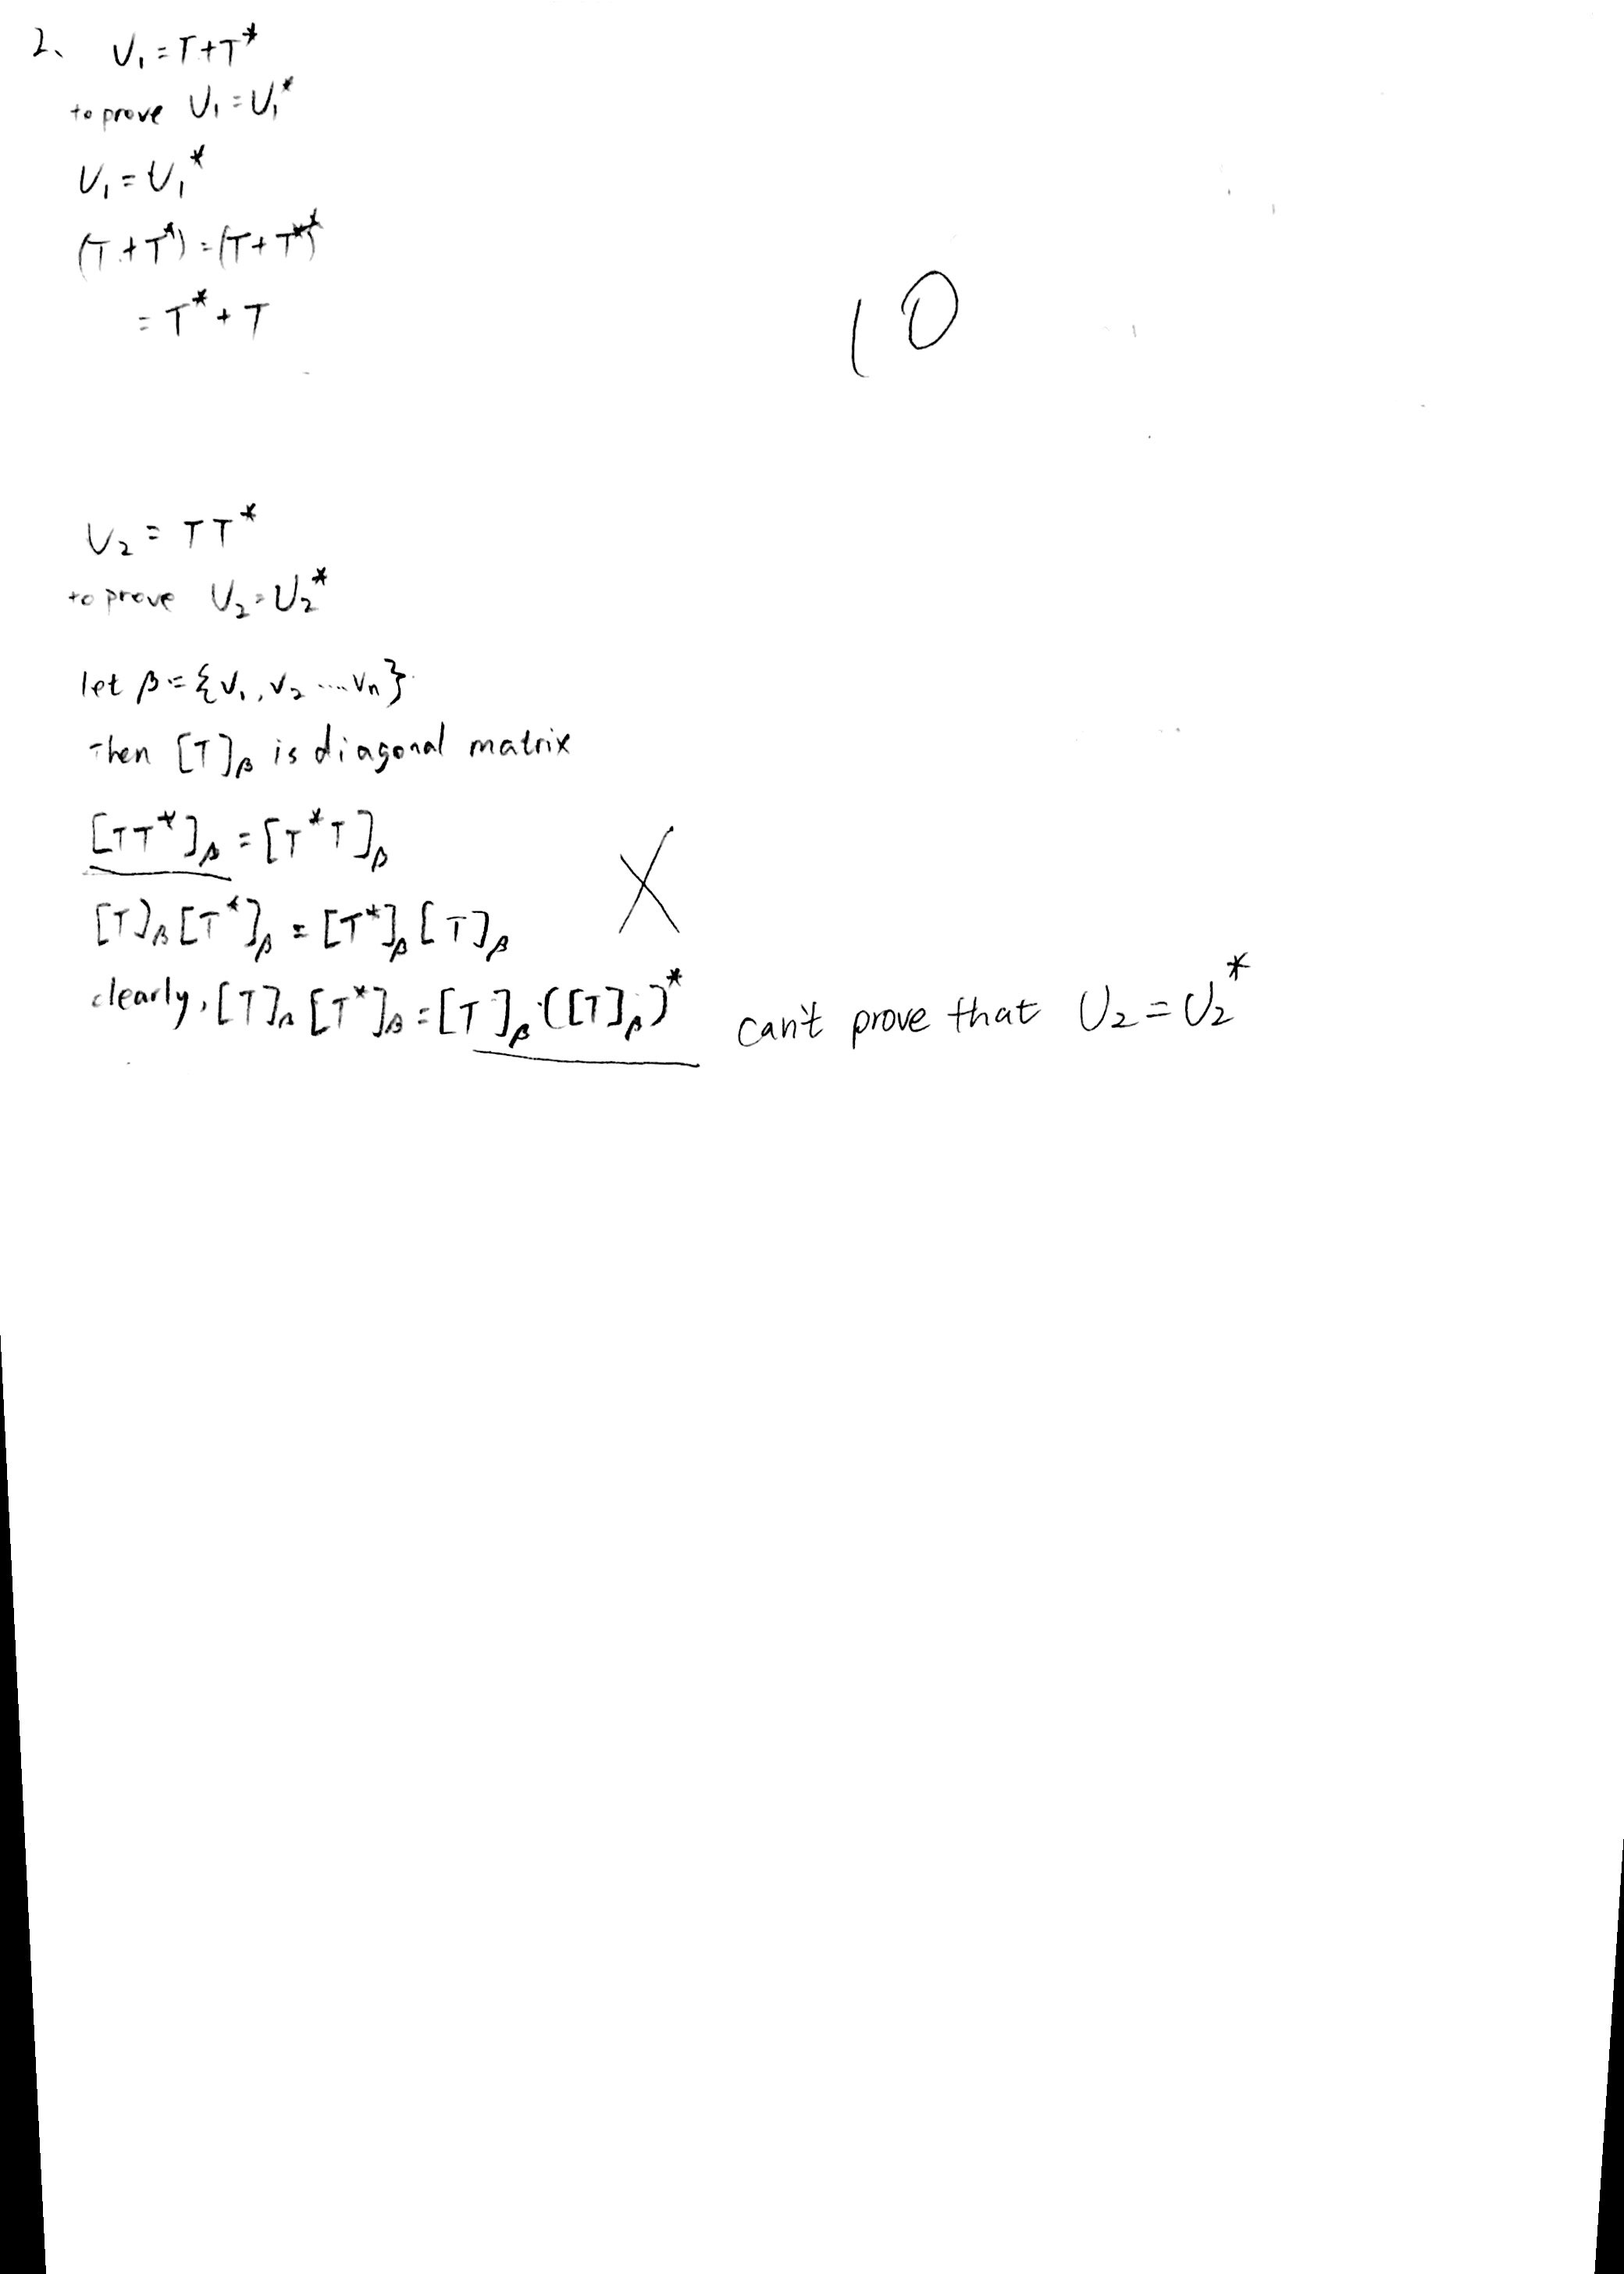 2、 U₁ = T + T*
to prove U₁ = U₁*
U₁ = U₁*
(T + T*) = (T + T*)*
= T* + T
10
U₂ = TT*
to prove U₂ = U₂*
let β = {v₁, v₂ .... vₙ}
then [T]β is diagonal matrix
[TT*]β = [T*T]β
[T]β [T*]β = [T*]β [T]β
X
clearly, [T]β [T*]β = [T]β · ([T]β)* can't prove that U₂ = U₂*